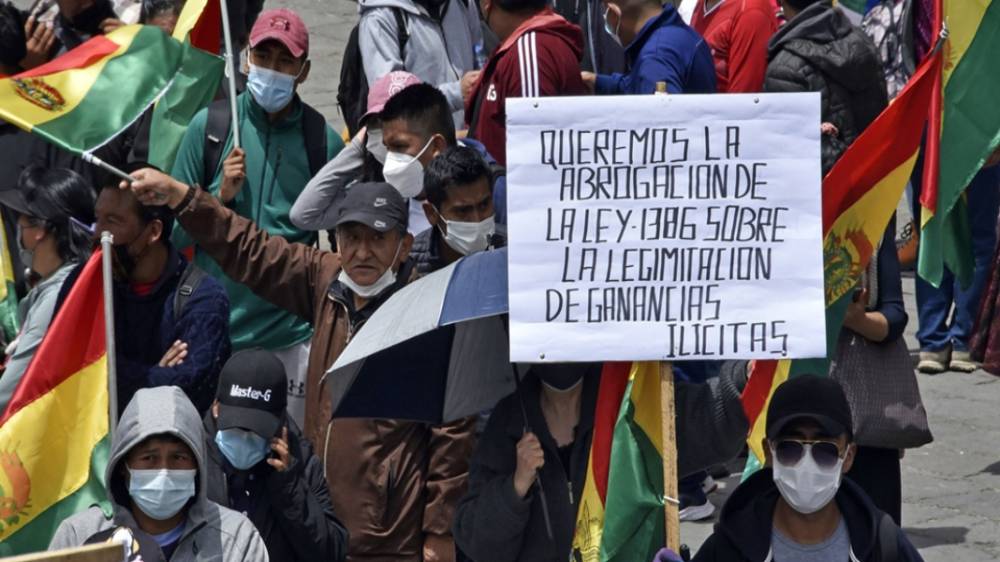 QUEREMOS LA
ABROGACION DE
LA LEY-1386 SOBRE
LA LEGIMITACION
DE GANANCIAS
ILICITAS
Master-G